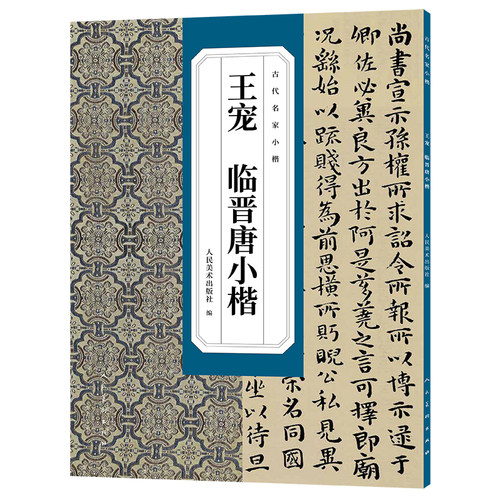 古代名家小楷
王宠 临晋唐小楷
人民美术出版社 编
尚書宣示孫權所求詔令所報所以博示逮于
卿佐必冀良方出於阿是芻蕘之言可擇郎廟
况繇始以疏賤得為前恩橫所眄睨公私見異
宗名同國
坐以待旦
古代名家小楷
王宠 临晋唐小楷
人民美术出版社 编
人民美术出版社